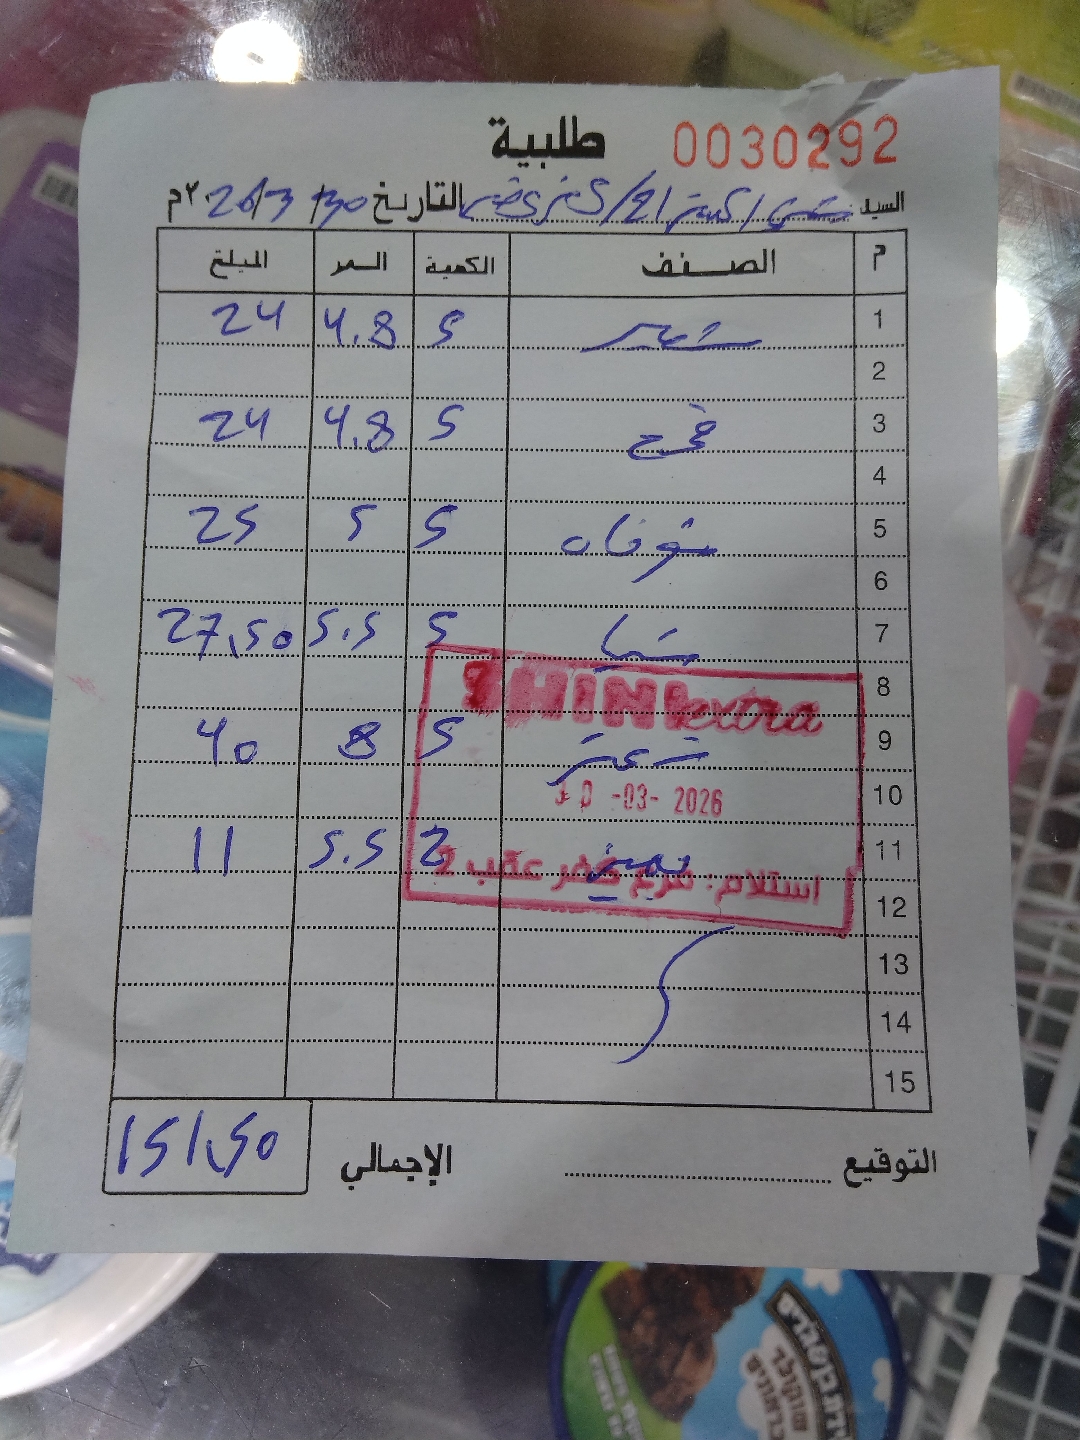 طلبية 0030292
السيد التاريخ 30/3/26 ٢٠م
م الصنف الكمية السعر المبلغ
1 شعير 5 4.8 24
2
3 قمح 5 4.8 24
4
5 شوفان 5 5 25
6
7 5 5.5 27,50
8
SHINI extra
9 زعتر 5 8 40
10
30 -03- 2026
11 2 5.5 11
استلام: فرع كفر عقب 2
12
13
14
15
التوقيع الإجمالي 151,50